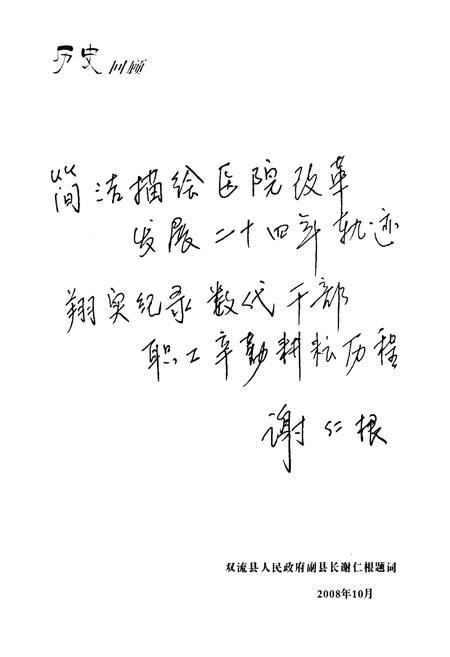 历史回顾
简洁描绘医院改革
发展二十四年轨迹
翔实纪录数代干部
职工辛勤耕耘历程
谢仁根
双流县人民政府副县长谢仁根题词
2008年10月